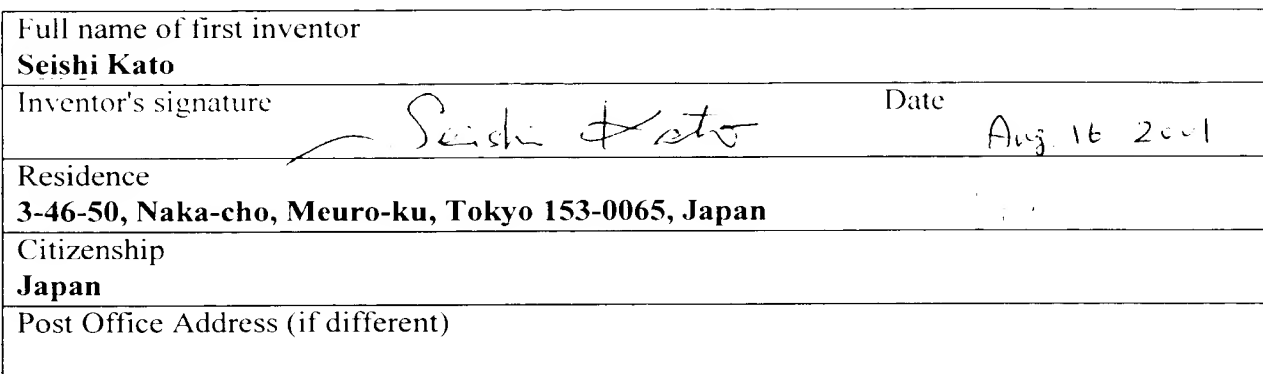 Full name of first inventor
Seishi Kato
Inventor's signature Seishi Kato Date Aug. 16 2001
Residence
3-46-50, Naka-cho, Meuro-ku, Tokyo 153-0065, Japan
Citizenship
Japan
Post Office Address (if different)